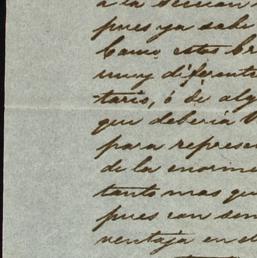 a la sección
pues ya sabe
Como estos tr
muy diferent
tario, ó de alg
que deberia
para represen
de la enorme
tanto mas qu
pues con sen
ventaja en el